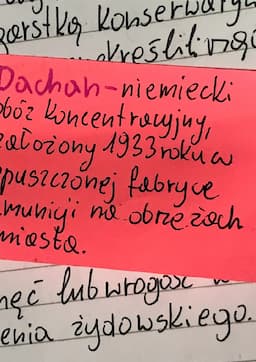 garstką konserwaty
określili
Dachau-niemiecki
obóz koncentracyjny,
założony 1933 roku w
puszczonej fabryce
amunicji na obrzeżach
miasta.
hęć lub wrogość w
enia żydowskiego.